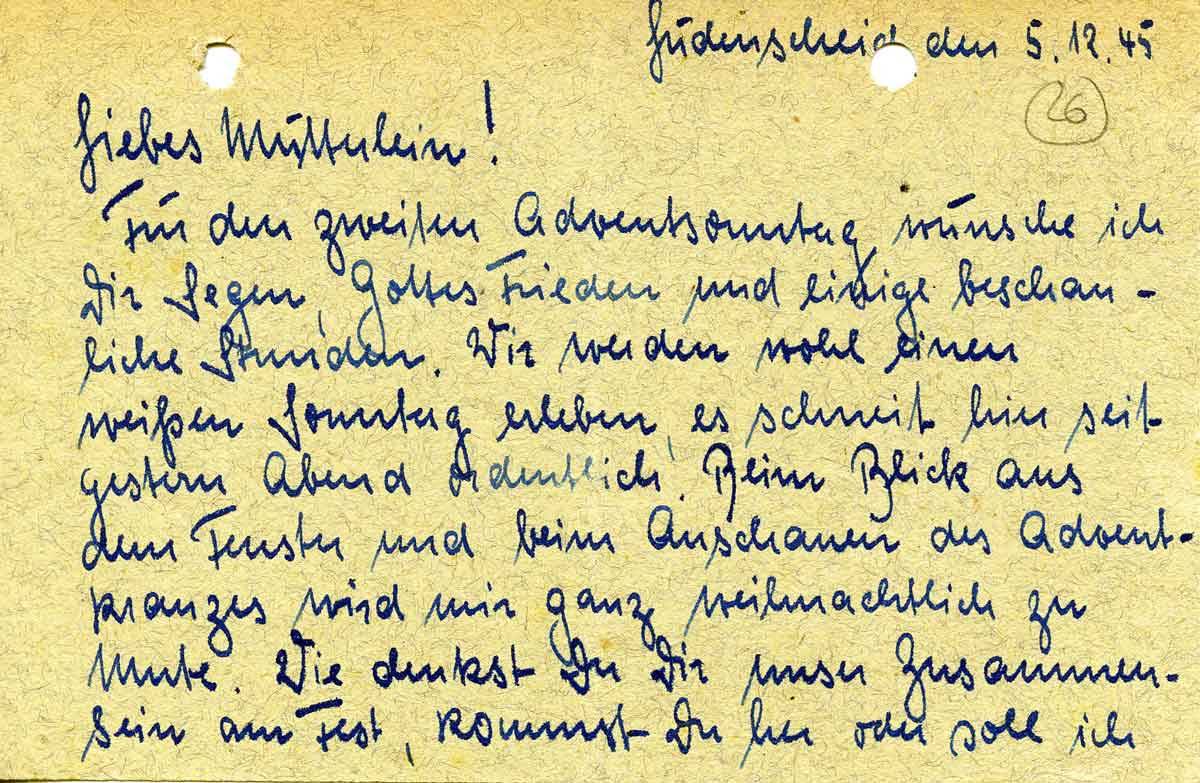 Lüdenscheid, den 5.12.45
26
Liebes Mütterlein!
Für den zweiten Adventsonntag wünsche ich
Dir Segen, Gottes Frieden und einige beschau-
liche Stunden. Wir werden wohl einen
weißen Sonntag erleben, es schneit hier seit
gestern Abend ordentlich. Beim Blick aus
dem Fenster und beim Anschauen des Advent-
kranzes wird mir ganz weihnachtlich zu
Mute. Wie denkst Du Dir unser Zusammen-
sein am Fest, kommst Du her oder soll ich